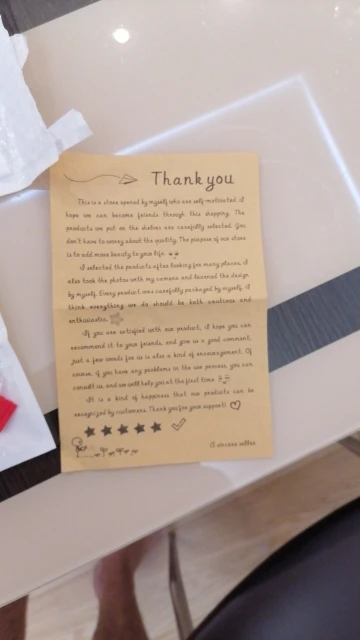 Thank you
This is a store opened by myself who are self-motivated. I
hope we can become friends through this shopping. The
products we put on the shelves are carefully selected. You
don't have to worry about the quality. The purpose of our store
is to add more beauty to your life.
I selected the products after looking for many places. I
also took the photos with my camera and learned the design
by myself. Every product was carefully packaged by myself. I
think everything we do should be both cautious and
enthusiastic.
If you are satisfied with our product, I hope you can
recommend it to your friends, and give us a good comment,
just a few words for us is also a kind of encouragement. Of
course, if you have any problems in the use process, you can
consult us, and we will help you at the first time.
It is a kind of happiness that our products can be
recognized by customers. Thank you for your support!
A sincere seller